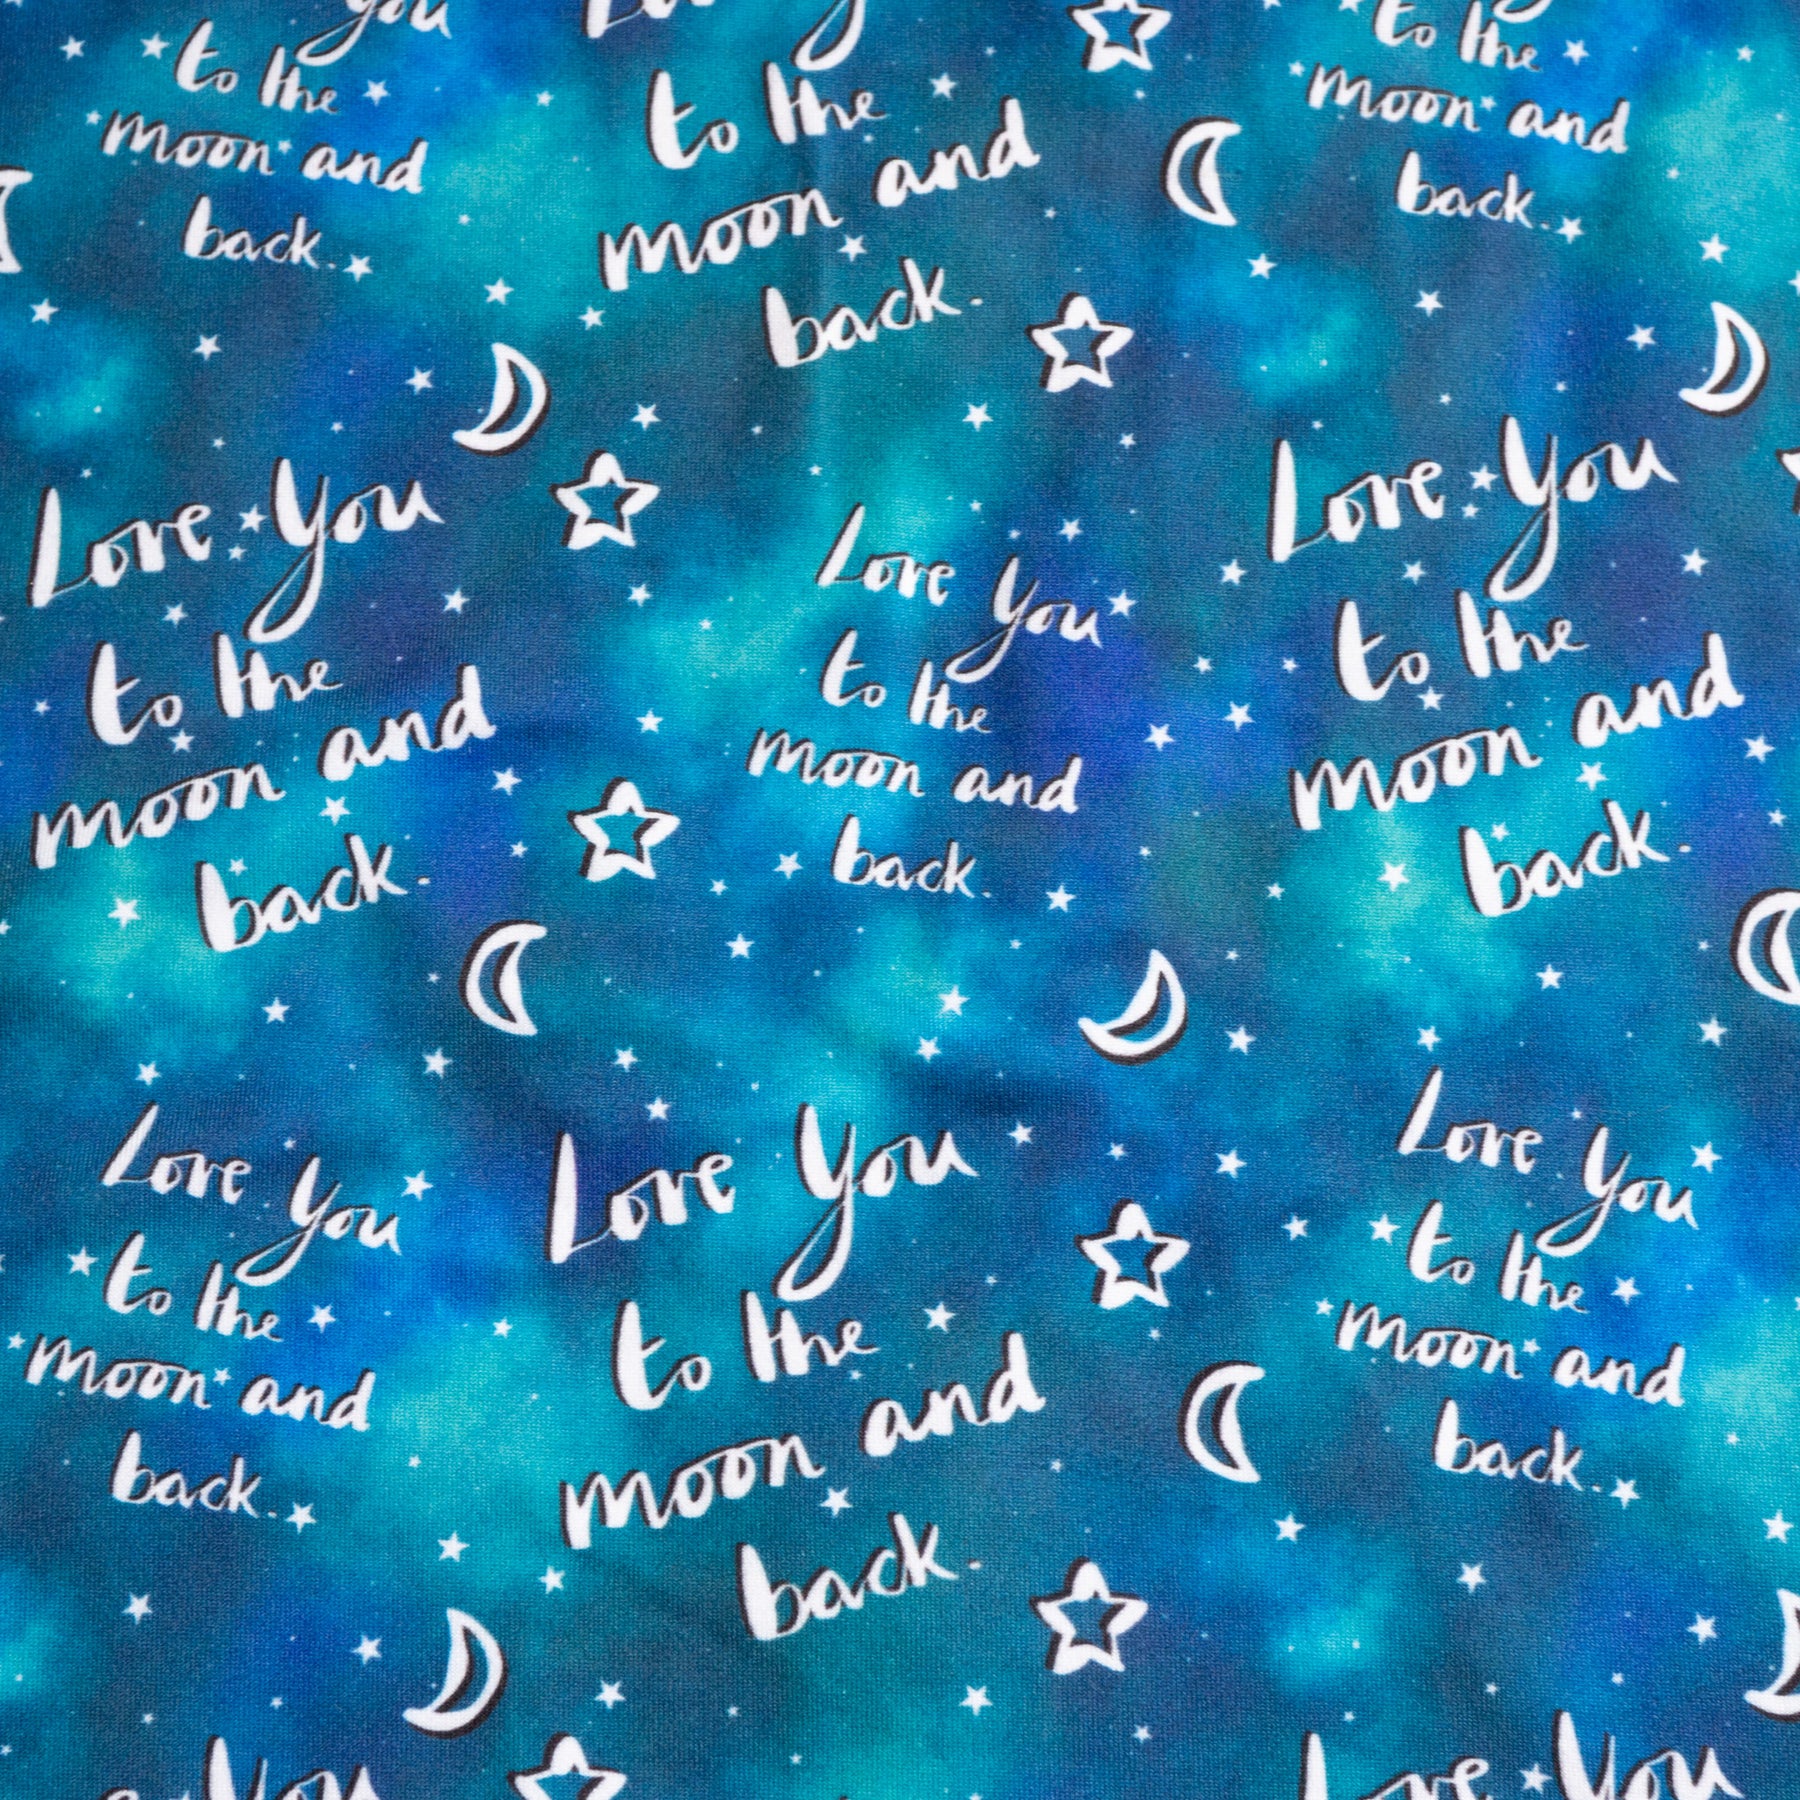 you
to the
moon and
back.
you
to the
moon and
back.
to the
moon and
back.
Love You
to the
moon and
back.
Love You
to the
moon and
back.
Love You
to the
moon and
back.
Love You
to the
moon and
back.
Love You
to the
moon and
back.
Love You
to the
moon and
back.
You
Love You